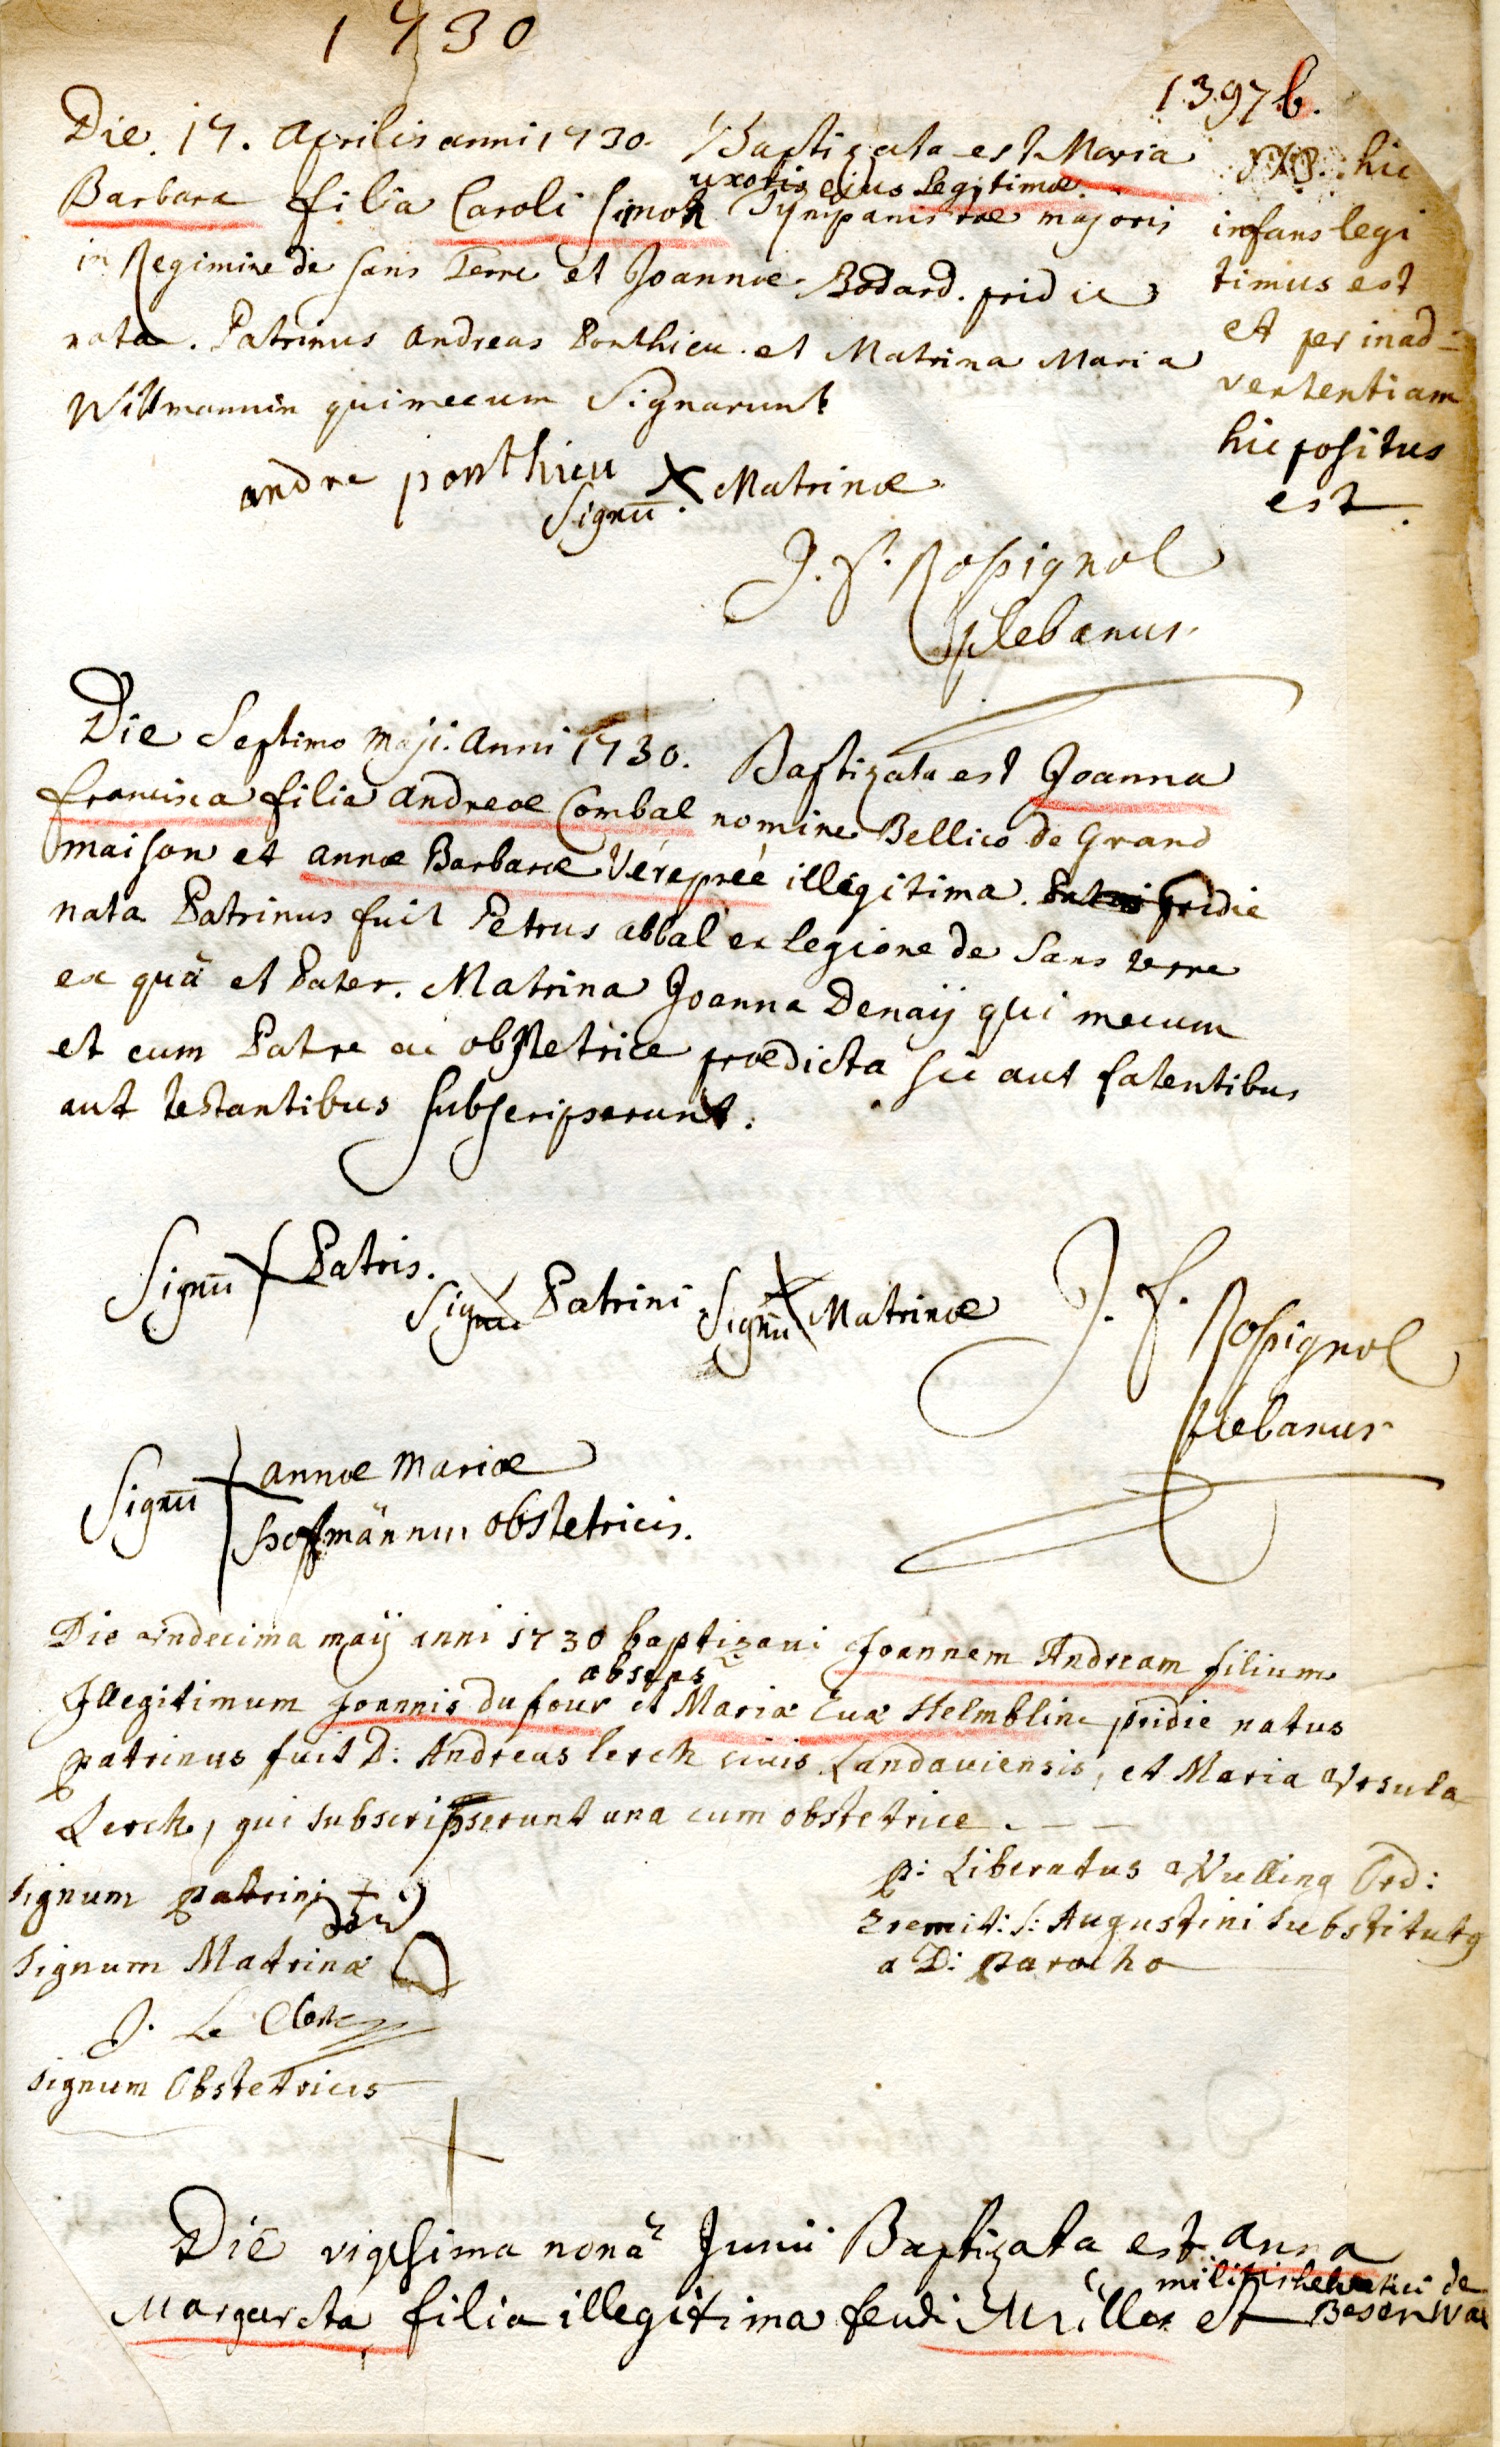 1730
1397 b.
Die 17. Aprilis anni 1730. Baptizata est Maria
uxoris ejus Legitimæ
Barbara filia Caroli Simon Tympanistræ majoris
in Regimine de Sans Terre et Joannæ Bodard. pridie
nata. Patrinus Andreas Ponthieu. et Matrina Maria
Willmannin qui mecum Signarunt
NB. hic
infans legi
timus est
et per inad=
vertentiam
hic positus
est.
andre ponthieu
Signū. X Matrinæ
J. F. Rossignol
plebanus
Die Septimo Maji. Anni 1730. Baptizata est Joanna
francisca filia Andreæ Combal nomine Bellico de Grand
maison et annæ Barbaræ Vérepreé illegitima. pridie
nata Patrinus fuit Petrus abbal ex legione de Sans terre
ex quâ et Pater. Matrina Joanna Denaÿ qui mecum
et cum Patre ac obstetrice prædicta sic aut fatentibus
aut testantibus subscripserunt.
Signū Patris.
Signū Patrini
Signū Matrinæ
J. F. Rossignol
plebanus
Signū annæ Mariæ
hoffmännin obstetricis.
Die undecima maÿ anni 1730 baptizavi Joannem Andream filium
absens
Illegitimum Joannis du four et Mariæ Evæ Helmbline pridie natus
patrinus fuit D: Andreas lerch civis Landaviensis, et Maria Ursula
Lerch, qui subscripserunt una cum obstetrice.
p: Liberatus Wulling Ord:
Eremit: S: Augustini substitutg
a D: parocho
signum patrini
signum Matrinæ
J. Le
signum Obstetricis
Die vigesima nonâ Junii Baptizata est anna
militis helvetici de
Besenwal
Margareta filia illegitima feudi Miller et